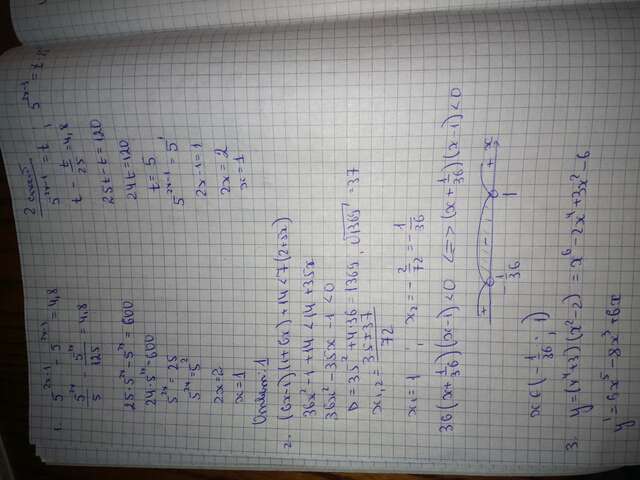 1. 5^{2x-1} - 5^{2x-3} = 4,8
5^{2x}/5 - 5^{2x}/125 = 4,8
25·5^{2x} - 5^{2x} = 600
24·5^{2x} = 600
5^{2x} = 25
5^{2x} = 5^2
2x = 2
x = 1
Ответ: 1
2. (6x-1)(1+6x)+14<7(2+5x)
36x^2-1+14<14+35x
36x^2-35x-1<0
D=35^2+4·36=1369, √1369=37
x_{1,2}=(35±37)/72
x_1=1, x_2=-2/72=-1/36
36(x+1/36)(x-1)<0 <=> (x+1/36)(x-1)<0
+ - + x
-1/36 1
x∈(-1/36; 1)
3. y=(x^4+3)(x^2-2)=x^6-2x^4+3x^2-6
y'=6x^5-8x^3+6x
2 способ
5^{2x-1}=t, 5^{2x-3}=
t-t/25=4,8
25t-t=120
24t=120
t=5
5^{2x-1}=5^1
2x-1=1
2x=2
x=1